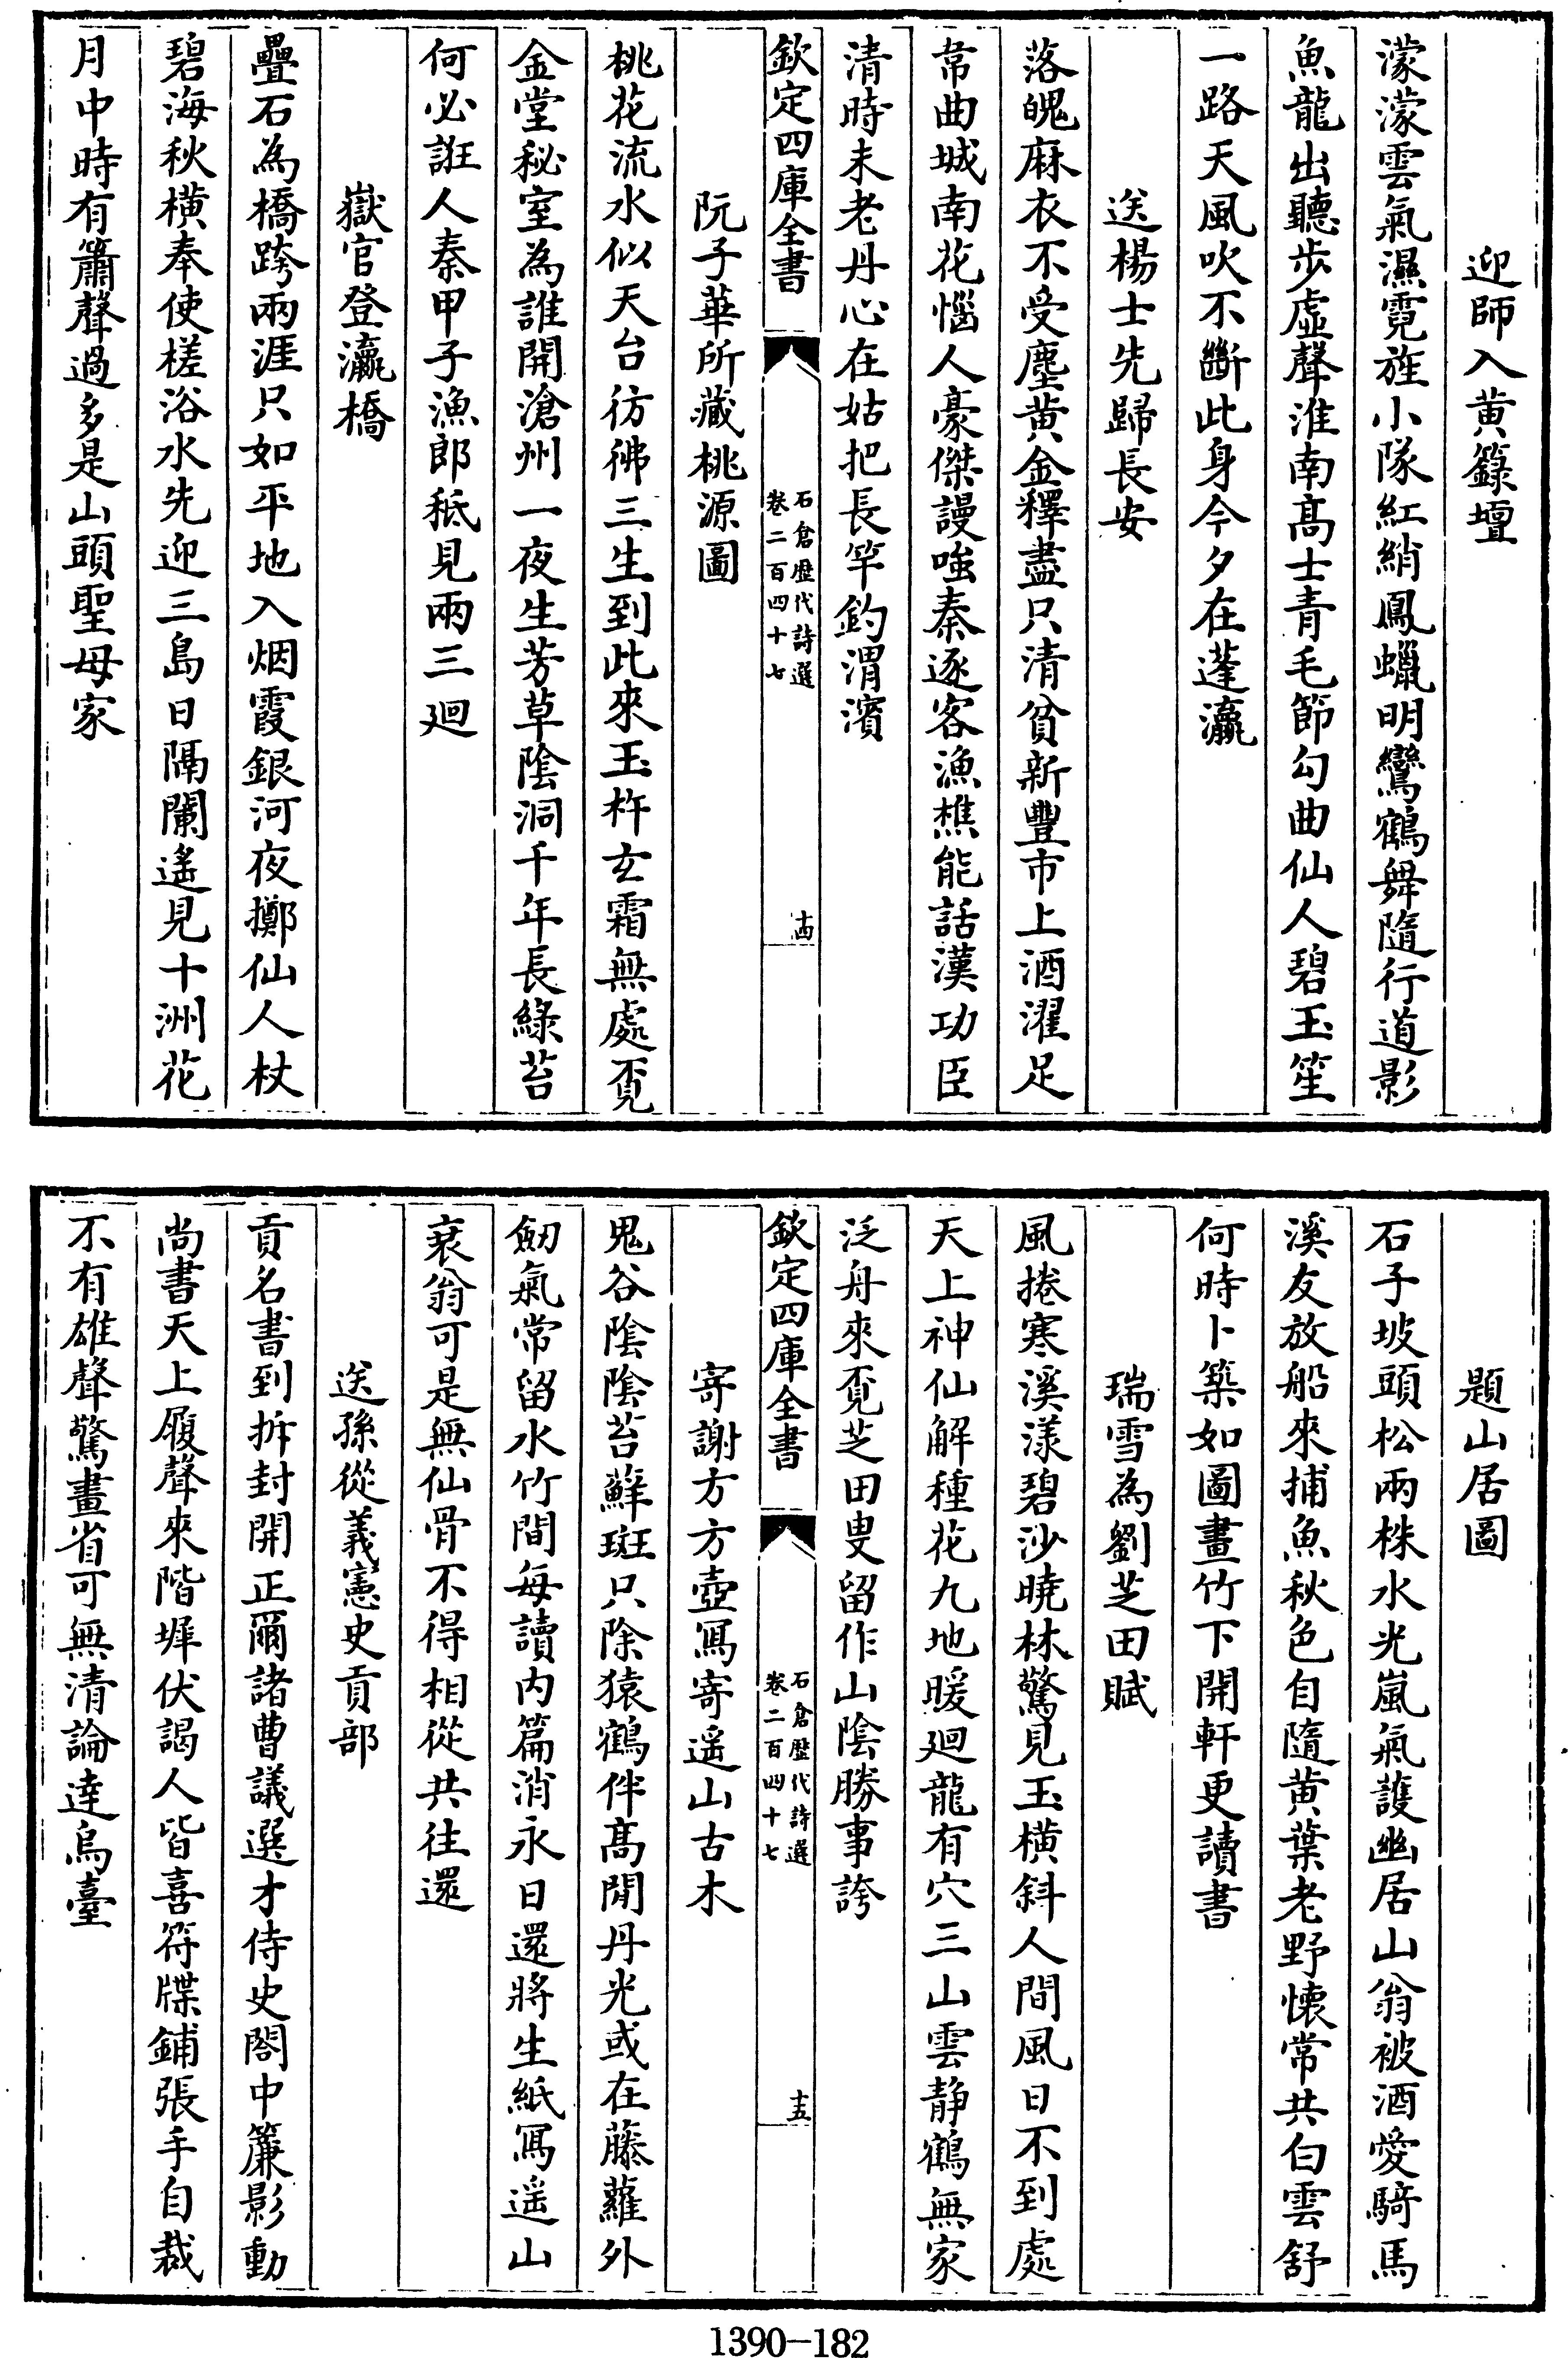 迎師入黄籙壇
濛濛雲氣濕霓旌小隊紅綃鳳蠟明鸞鶴舞隨行道影
魚龍出聽步虛聲淮南髙士青毛節勾曲仙人碧玉笙
一路天風吹不斷此身今夕在蓬瀛
送楊士先歸長安
落魄麻衣不受塵黄金釋盡只清貧新豐市上酒濯足
韋曲城南花惱人豪傑謾嗤秦逐客漁樵能話漢功臣
清時未老丹心在姑把長竿釣渭濱
欽定四庫全書
石倉歴代詩選
卷二百四十七
十四
阮子華所藏桃源圖
桃花流水似天台彷彿三生到此來玉杵玄霜無處覔
金堂秘室為誰開滄州一夜生芳草陰洞千年長綠苔
何必誑人秦甲子漁郎秪見兩三廻
嶽官登瀛橋
疊石為橋跨兩涯只如平地入烟霞銀河夜擲仙人杖
碧海秋橫奉使槎浴水先迎三島日隔闌遙見十洲花
月中時有簫聲過多是山頭聖母家
題山居圖
石子坡頭松兩株水光嵐氣護幽居山翁被酒愛騎馬
溪友放船來捕魚秋色自隨黄葉老野懐常共白雲舒
何時卜築如圖畫竹下開軒更讀書
瑞雪為劉芝田賦
風捲寒溪漾碧沙曉林驚見玉橫斜人間風日不到處
天上神仙解種花九地暖廻龍有穴三山雲静鶴無家
泛舟來覔芝田叟留作山陰勝事誇
欽定四庫全書
石倉歴代詩選
卷二百四十七
十五
寄謝方方壺寫寄遥山古木
鬼谷陰陰苔蘚斑只除猿鶴伴髙閒丹光或在藤蘿外
劒氣常留水竹間每讀内篇消永日還將生紙寫遥山
衰翁可是無仙骨不得相從共往還
送孫從義憲史貢部
貢名書到拆封開正爾諸曹議選才侍史閤中簾影動
尚書天上履聲來階墀伏謁人皆喜符牒鋪張手自裁
不有雄聲驚畫省可無清論達烏臺
1390-182